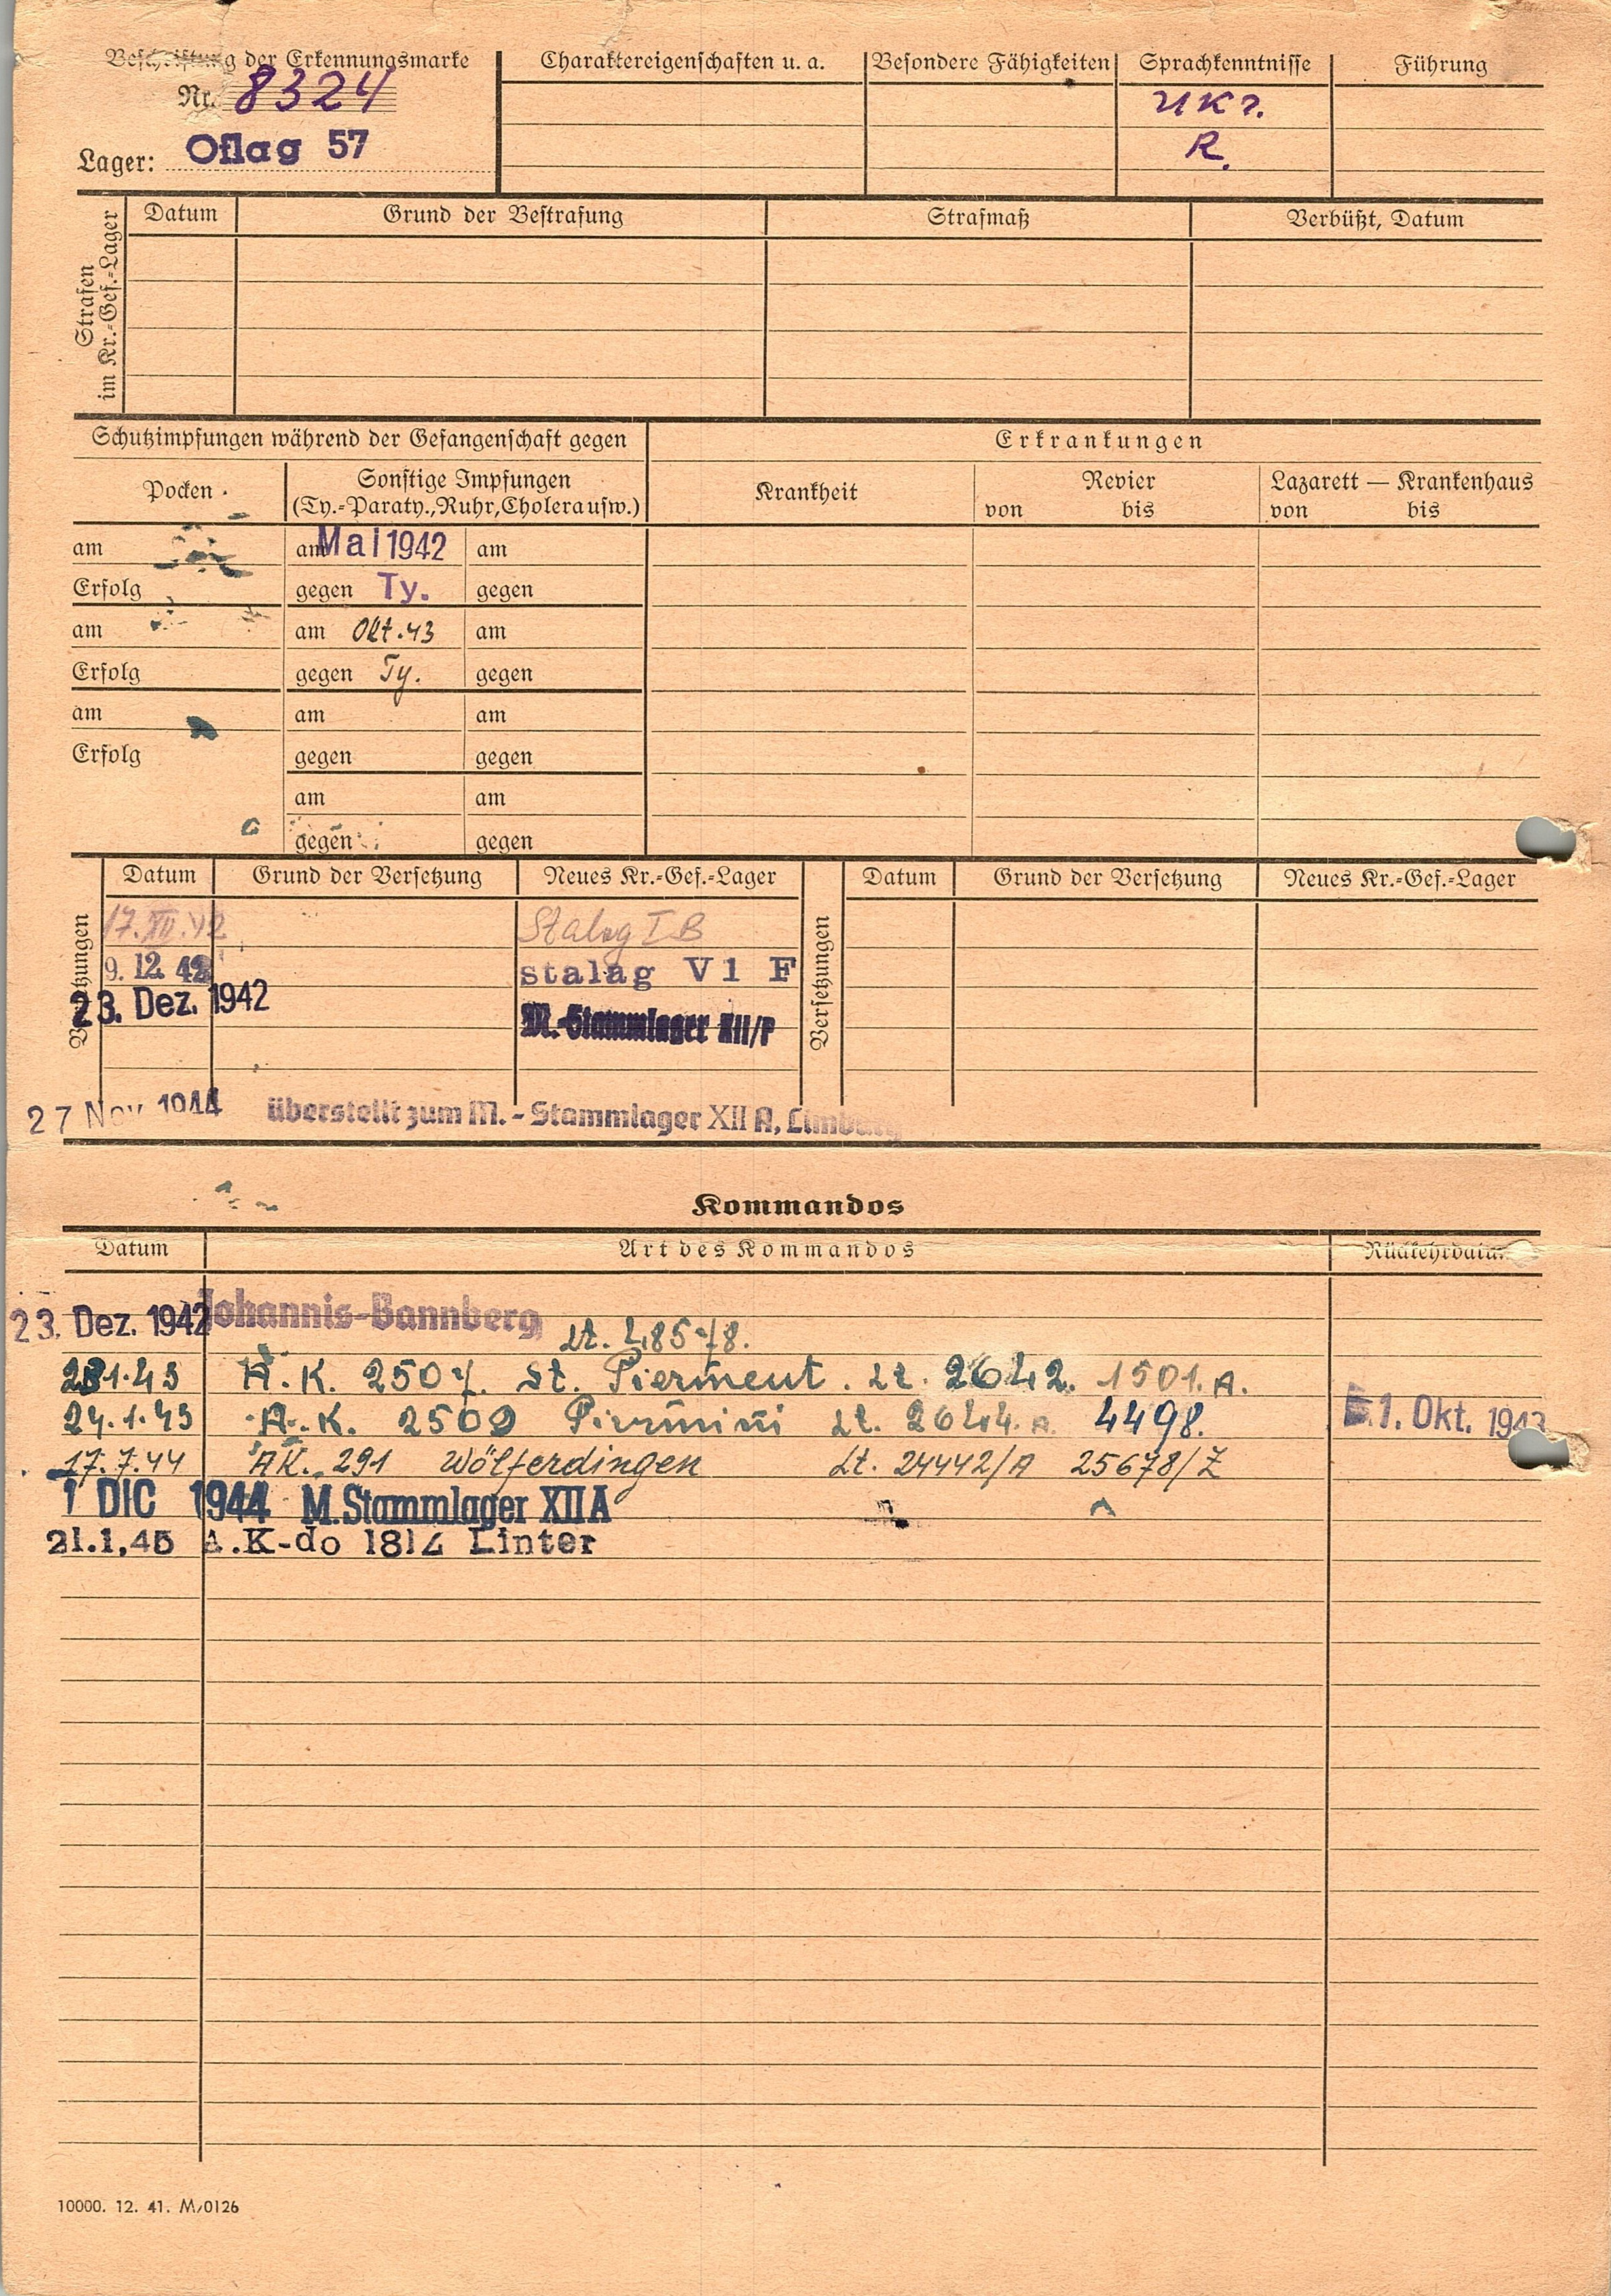 Beschriftung der Erkennungsmarke
Nr. 8324
Lager: Oflag 57
Charaktereigenschaften u. a.
Besondere Fähigkeiten
Sprachkenntnisse
Ukr.
R.
Führung
Strafen im Kr.-Gef.-Lager
Datum Grund der Bestrafung Strafmaß Verbüßt, Datum
Schutzimpfungen während der Gefangenschaft gegen
Erkrankungen
Pocken
Sonstige Impfungen
(Ty.-Paraty.,Ruhr,Cholera usw.)
Krankheit
Revier
von bis
Lazarett — Krankenhaus
von bis
am am Mai 1942 am
Erfolg gegen Ty. gegen
am am Okt.43 am
Erfolg gegen Ty. gegen
am am am
Erfolg gegen gegen
am am
gegen gegen
Versetzungen
Datum Grund der Versetzung Neues Kr.-Gef.-Lager
17.XII.42 Stalag I B
9. 12. 42 stalag V1 F
23. Dez. 1942 M.-Stammlager XII/F
Versetzungen
Datum Grund der Versetzung Neues Kr.-Gef.-Lager
27 Nov 1944 überstellt zum M.-Stammlager XII A, Limburg
Kommandos
Datum Art des Kommandos Rückkehrdatum
23. Dez. 1942 Johannis-Bannberg
Lt. 485/8.
1.43 A.K. 2507. St. Pierment. Lt. 2642. 1501.A.
24.1.43 A.K. 2509 Piermini Lt. 2644.A. 4498. 1. Okt. 1943
17.7.44 AK. 291 Wölferdingen Lt. 24442/A 25678/Z
1 DIC 1944 M.Stammlager XII A
21.1.45 A.K-do 1812 Linter
10000. 12. 41. M/0126